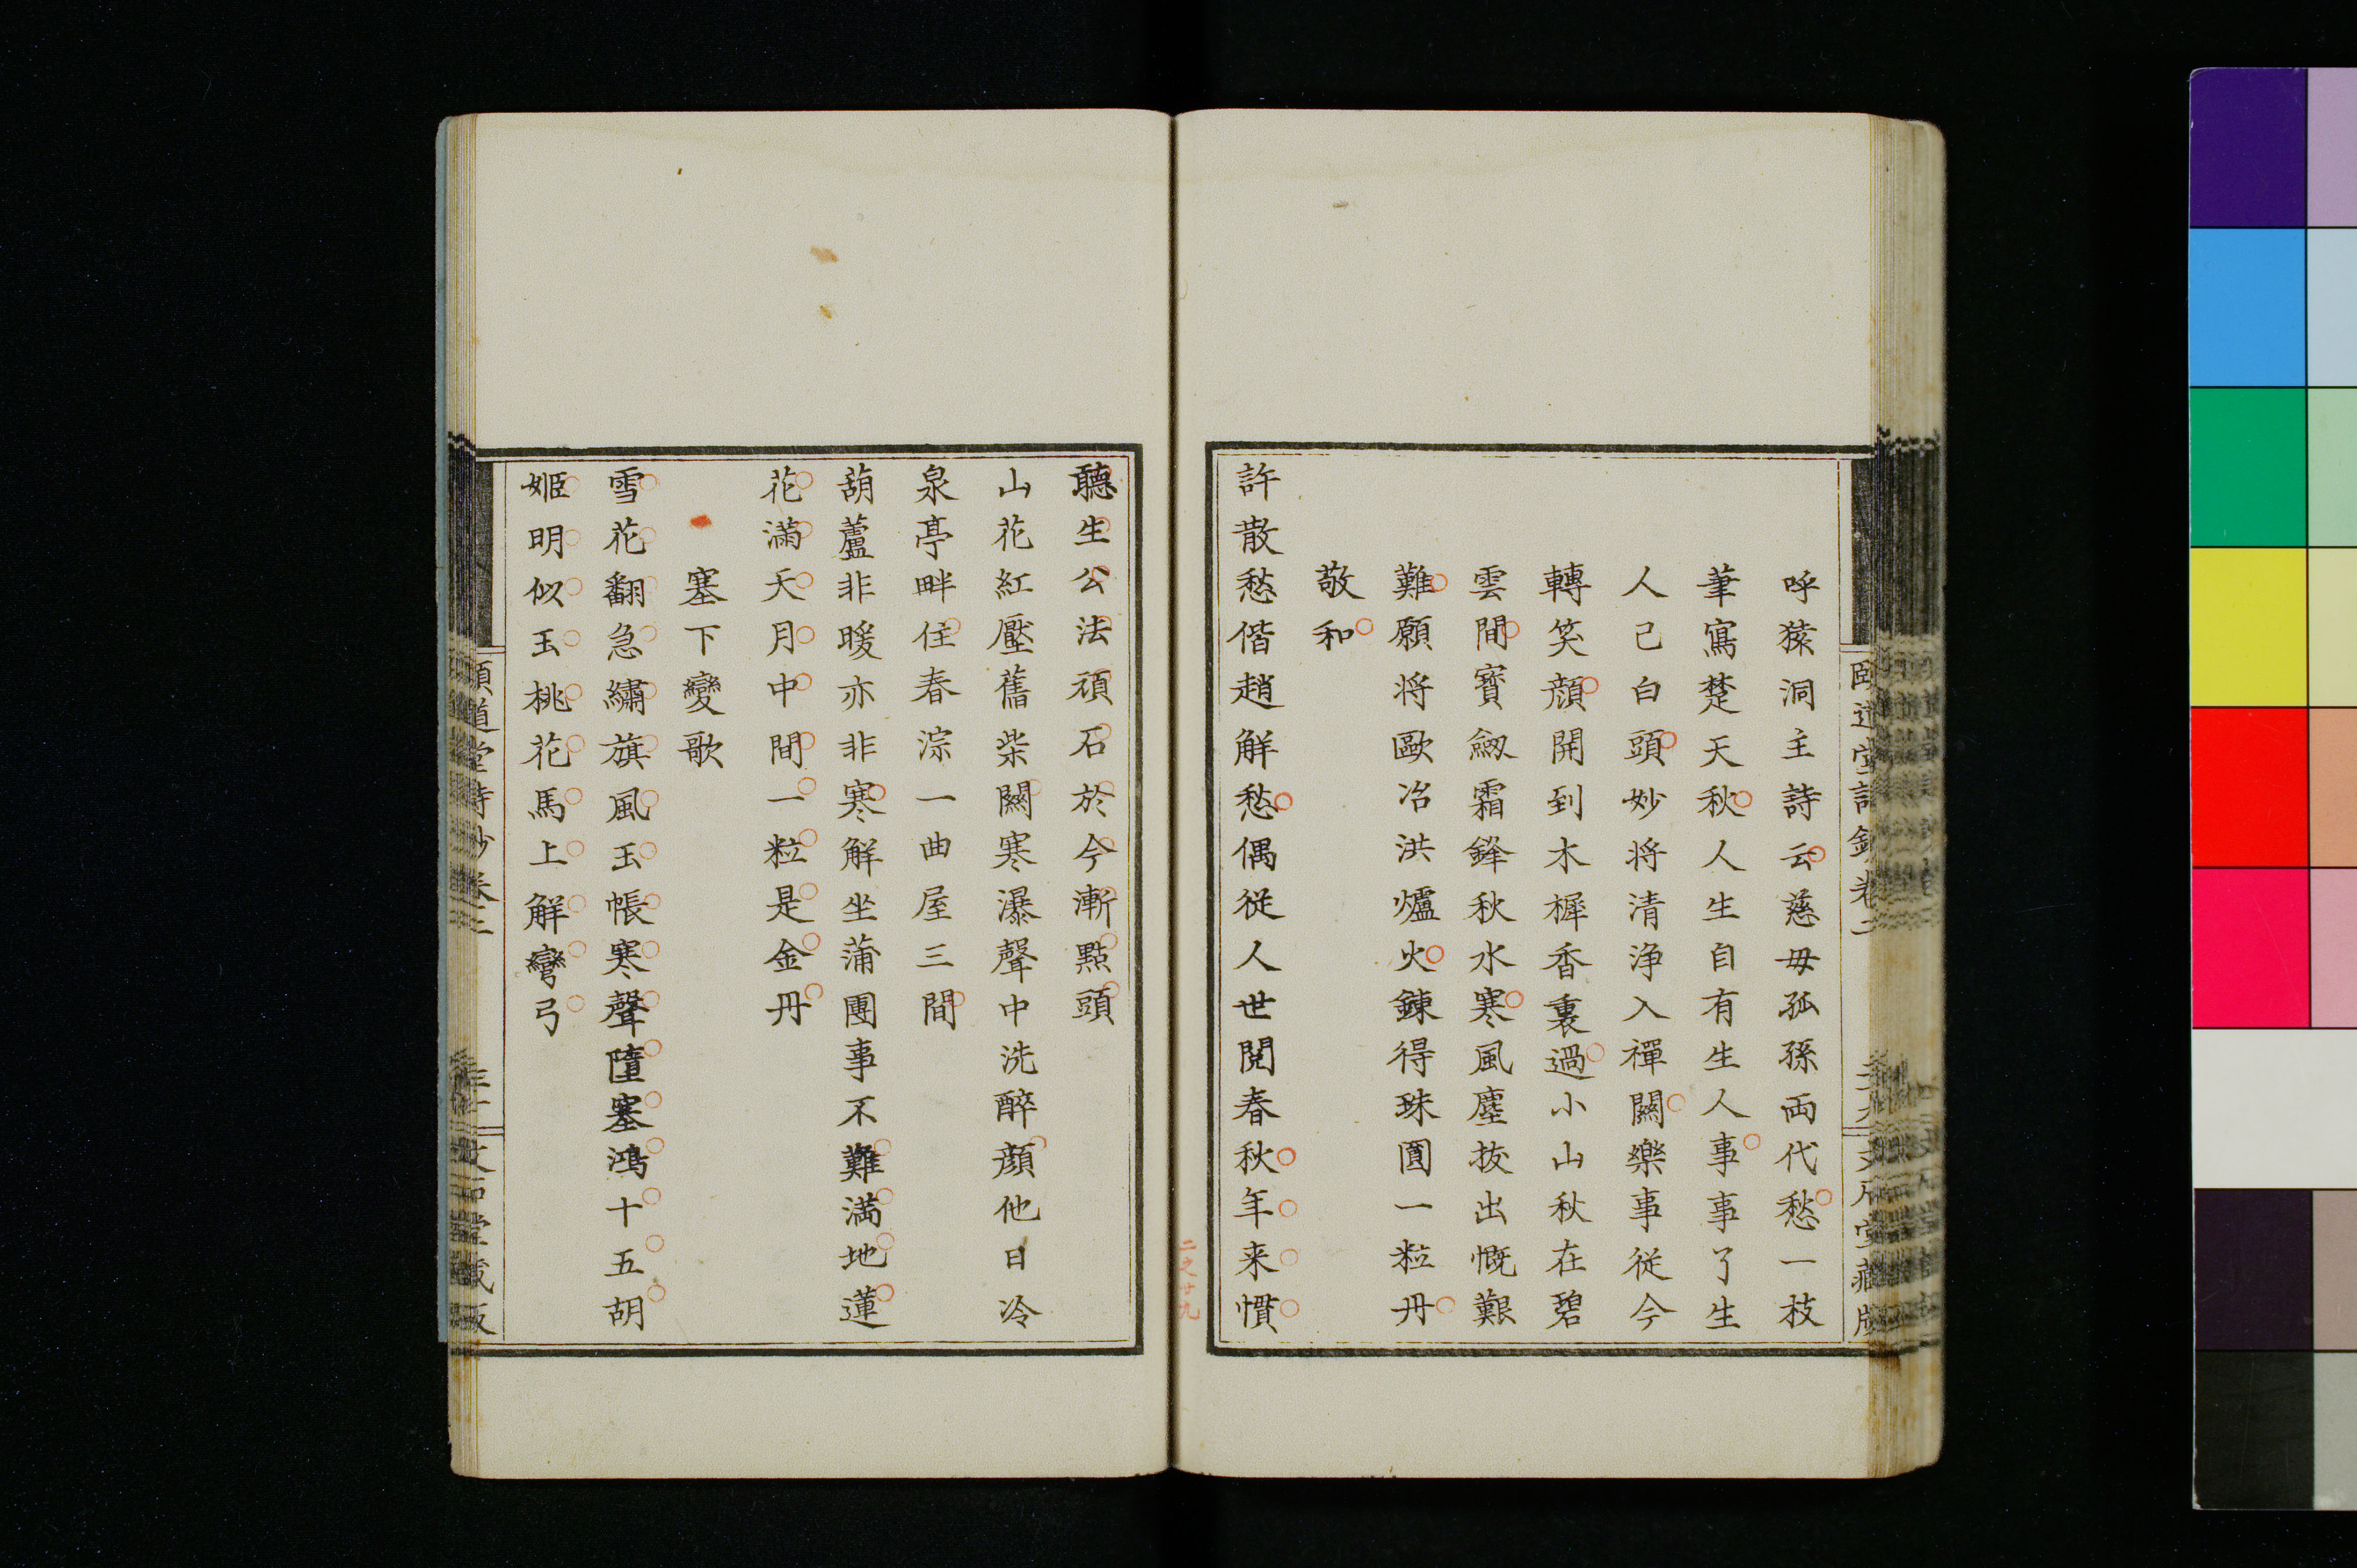 呼猿洞主詩云慈毋孤孫両代愁一枝
筆寫楚天秋人生自有生人事事了生
人己白頭妙将清浄入禪關樂事從今
轉笑顔開到木樨香裏過小山秋在碧
雲間寶劔霜鋒秋水寒風塵抜出慨艱
難願将歐冶洪爐火鍊得珠圓一粒丹
敬和
許散愁偕趙解愁偶從人世閲春秋年来慣
聽生公法頑石於今漸點頭
山花紅壓舊柴關寒瀑聲中洗醉顔他日冷
泉亭畔住春淙一曲屋三間
葫蘆非暖亦非寒解坐蒲團事不難満地蓮
花满天月中間一粒是金丹
塞下變歌
雪花翻急繡旗風玉帳寒聲墮塞鴻十五胡
姬明似玉桃花馬上解彎弓
二之廿九